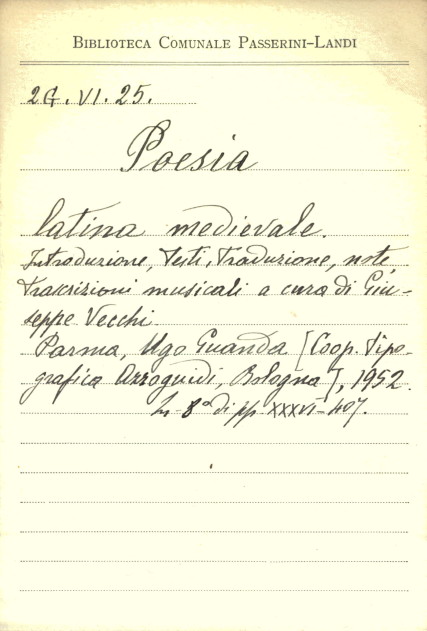 BIBLIOTECA COMUNALE PASSERINI-LANDI
2G. VI. 25.
Poesia
latina medievale.
Introduzione, Testi, Traduzione, note,
trascrizioni musicali a cura di Giu-
seppe Vecchi.
Parma, Ugo Guanda [Coop. Tipo-
grafica Azzoguidi, Bologna], 1952.
In 8° di pp. XXXVI-407.